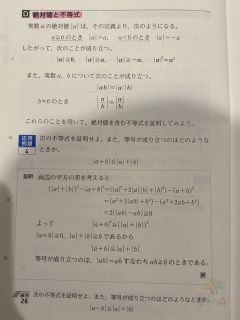 D 絶対値と不等式
実数 a の絶対値 |a| は,その定義より,次のようになる。
a≧0 のとき |a|=a, a<0 のとき |a|=−a
したがって,次のことが成り立つ。
|a|≧0, |a|≧a, |a|≧−a, |a|²=a²
また,実数 a, b について次のことが成り立つ。
|ab|=|a||b|
b≠0 のとき |a/b|=|a|/|b|
これらのことを用いて,絶対値を含む不等式を証明してみよう。
応用例題 4 次の不等式を証明せよ。また,等号が成り立つのはどのようなときか。
|a+b|≦|a|+|b|
証明 両辺の平方の差を考えると
(|a|+|b|)²−|a+b|²=(|a|²+2|a||b|+|b|²)−(a+b)²
=(a²+2|ab|+b²)−(a²+2ab+b²)
=2(|ab|−ab)≧0
よって |a+b|²≦(|a|+|b|)²
|a+b|≧0, |a|+|b|≧0 であるから
|a+b|≦|a|+|b|
等号が成り立つのは,|ab|=ab すなわち ab≧0 のときである。
終
練習 28 次の不等式を証明せよ。また,等号が成り立つのはどのようなときか。
|a−b|≦|a|+|b|